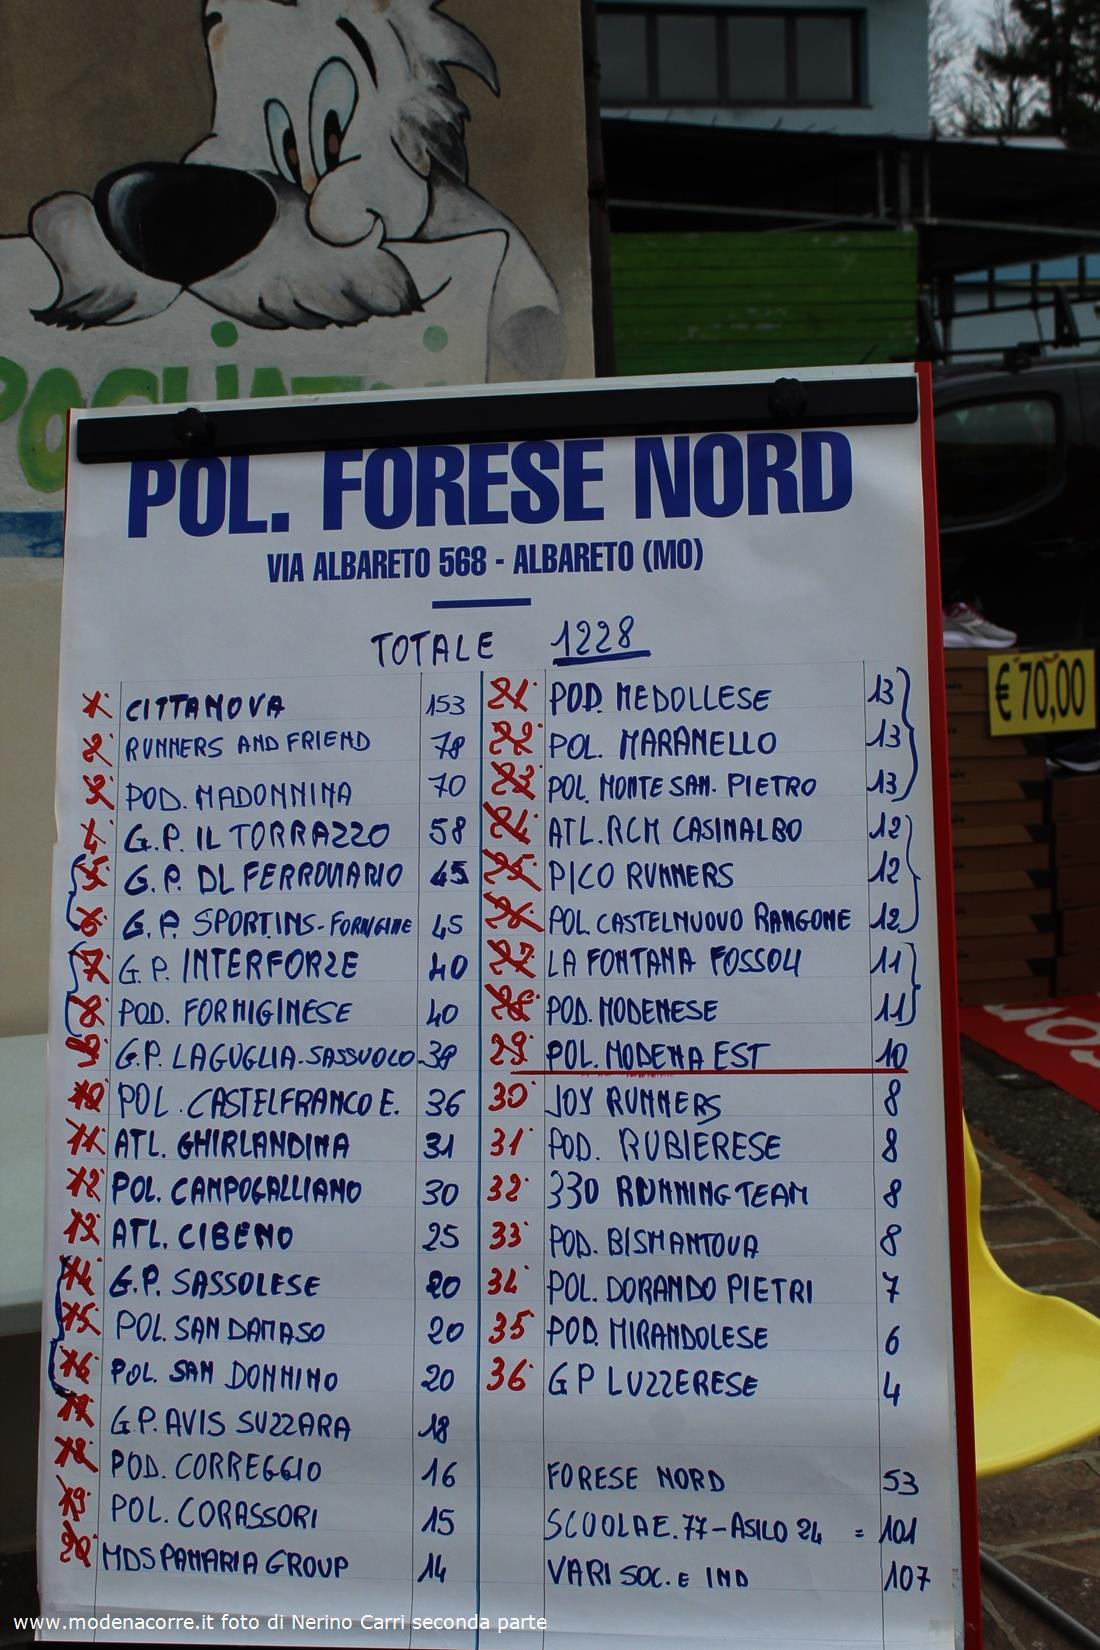 POL. FORESE NORD
VIA ALBARETO 568 - ALBARETO (MO)
TOTALE 1228
1° CITTANOVA 153
2° RUNNERS AND FRIEND 78
3° POD. MADONNINA 70
4° G.P. IL TORRAZZO 58
5° G.P. DL FERROVIARIO 45
6° G.P. SPORTINS-FORMIGINE 45
7° G.P. INTERFORZE 40
8° POD. FORMIGINESE 40
9° G.P. LAGUGLIA-SASSUOLO 38
10° POL. CASTELFRANCO E. 36
11° ATL. GHIRLANDINA 31
12° POL. CAMPOGALLIANO 30
13° ATL. CIBENO 25
14° G.P. SASSOLESE 20
15° POL. SAN DAMASO 20
16° POL. SAN DONNINO 20
17° G.P. AVIS SUZZARA 18
18° POD. CORREGGIO 16
19° POL. CORASSORI 15
20° MDS PANARIA GROUP 14
21° POD. MEDOLLESE 13
22° POL. MARANELLO 13
23° POL. MONTE SAN. PIETRO 13
24° ATL. RCM CASINALBO 12
25° PICO RUNNERS 12
26° POL. CASTELNUOVO RANGONE 12
27° LA FONTANA FOSSOLI 11
28° POD. MODENESE 11
29° POL. MODENA EST 10
30° JOY RUNNERS 8
31° POD. RUBIERESE 8
32° 330 RUNNING TEAM 8
33° POD. BISMANTOVA 8
34° POL. DORANDO PIETRI 7
35° POD. MIRANDOLESE 6
36° G P LUZZERESE 4
FORESE NORD 53
SCUOLA E. 77 - ASILO 24 = 101
VARI SOC. e IND 107
€ 70,00
www.modenacorre.it foto di Nerino Carri seconda parte